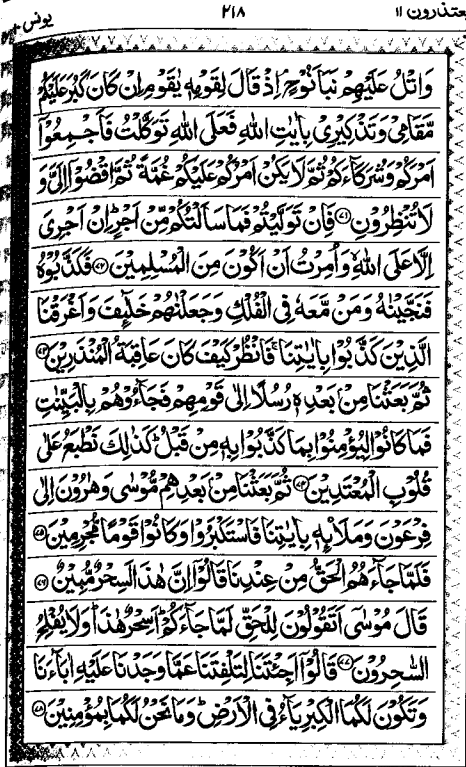 يعتذرون ١١ ٢١٨ يونس ١٠
وَاتْلُ عَلَيْهِمْ نَبَاَ نُوْحٍ اِذْ قَالَ لِقَوْمِهٖ يٰقَوْمِ اِنْ كَانَ كَبُرَ عَلَيْكُمْ
مَّقَامِيْ وَتَذْكِيْرِيْ بِاٰيٰتِ اللّٰهِ فَعَلَى اللّٰهِ تَوَكَّلْتُ فَاَجْمِعُوْٓا
اَمْرَكُمْ وَشُرَكَآءَكُمْ ثُمَّ لَا يَكُنْ اَمْرُكُمْ عَلَيْكُمْ غُمَّةً ثُمَّ اقْضُوْٓا اِلَيَّ وَ
لَا تُنْظِرُوْنِ ﴿٧١﴾ فَاِنْ تَوَلَّيْتُمْ فَمَا سَاَلْتُكُمْ مِّنْ اَجْرٍ ؕ اِنْ اَجْرِيَ
اِلَّا عَلَى اللّٰهِ ۙ وَاُمِرْتُ اَنْ اَكُوْنَ مِنَ الْمُسْلِمِيْنَ ﴿٧٢﴾ فَكَذَّبُوْهُ
فَنَجَّيْنٰهُ وَمَنْ مَّعَهٗ فِي الْفُلْكِ وَجَعَلْنٰهُمْ خَلٰٓئِفَ وَاَغْرَقْنَا
الَّذِيْنَ كَذَّبُوْا بِاٰيٰتِنَا ۚ فَانْظُرْ كَيْفَ كَانَ عَاقِبَةُ الْمُنْذَرِيْنَ ﴿٧٣﴾
ثُمَّ بَعَثْنَا مِنْۢ بَعْدِهٖ رُسُلًا اِلٰى قَوْمِهِمْ فَجَآءُوْهُمْ بِالْبَيِّنٰتِ
فَمَا كَانُوْا لِيُؤْمِنُوْا بِمَا كَذَّبُوْا بِهٖ مِنْ قَبْلُ ؕ كَذٰلِكَ نَطْبَعُ عَلٰى
قُلُوْبِ الْمُعْتَدِيْنَ ﴿٧٤﴾ ثُمَّ بَعَثْنَا مِنْۢ بَعْدِهِمْ مُّوْسٰى وَهٰرُوْنَ اِلٰى
فِرْعَوْنَ وَمَلَا۟ئِهٖ بِاٰيٰتِنَا فَاسْتَكْبَرُوْا وَكَانُوْا قَوْمًا مُّجْرِمِيْنَ ﴿٧٥﴾
فَلَمَّا جَآءَهُمُ الْحَقُّ مِنْ عِنْدِنَا قَالُوْٓا اِنَّ هٰذَا لَسِحْرٌ مُّبِيْنٌ ﴿٧٦﴾
قَالَ مُوْسٰٓى اَتَقُوْلُوْنَ لِلْحَقِّ لَمَّا جَآءَكُمْ ؕ اَسِحْرٌ هٰذَا ؕ وَلَا يُفْلِحُ
السّٰحِرُوْنَ ﴿٧٧﴾ قَالُوْٓا اَجِئْتَنَا لِتَلْفِتَنَا عَمَّا وَجَدْنَا عَلَيْهِ اٰبَآءَنَا
وَتَكُوْنَ لَكُمَا الْكِبْرِيَآءُ فِي الْاَرْضِ ؕ وَمَا نَحْنُ لَكُمَا بِمُؤْمِنِيْنَ ﴿٧٨﴾